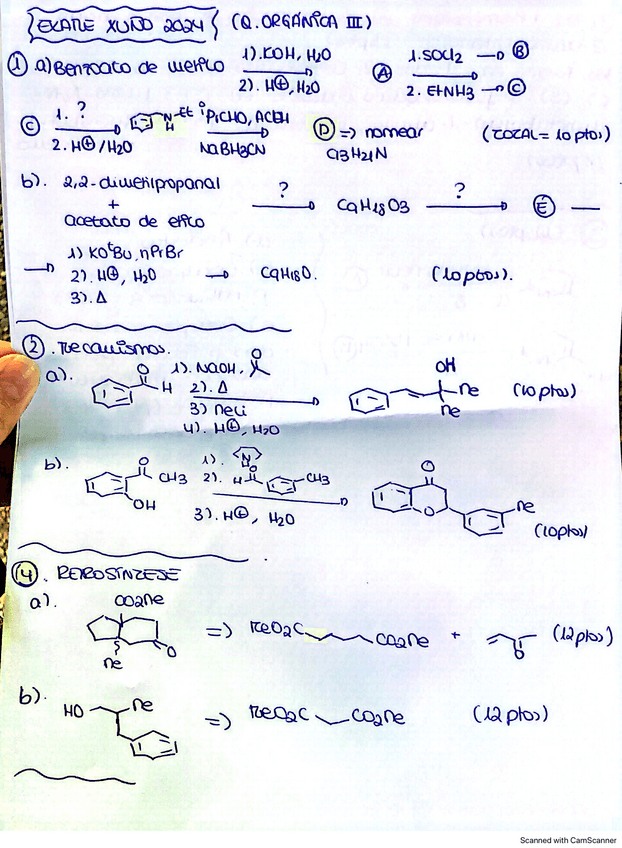 EXAME XUÑO 2024 (Q. ORGÁNICA III)
① a) Benzoato de metilo 1). KOH, H2O 2). H⊕, H2O Ⓐ 1. SOCl2 → Ⓑ 2. EtNH3 → Ⓒ
Ⓒ 1. ? 2. H⊕/H2O N H Et iPrCHO, AcEH NaBH3CN Ⓓ => nomear C13H21N (TOTAL = 10 ptos)
b). 2,2-dimetilpropanal + acetato de etilo ? C9H18O3 ? Ⓔ
1) KOtBu, nPrBr
2). H⊕, H2O → C9H18O. (10 ptos).
3). Δ
② . Mecanismos.
a). O H 1). NaOH, O 2). Δ 3) MeLi 4). H⊕, H2O OH Me Me (10 ptos)
b). O CH3 OH 1). N H 2). H O CH3 3). H⊕, H2O O O Me (10 ptos)
④ . RETROSÍNTESE
a). CO2Me Me O => MeO2C CO2Me + O (12 ptos)
b). HO Me => MeO2C CO2Me (12 ptos)
Scanned with CamScanner